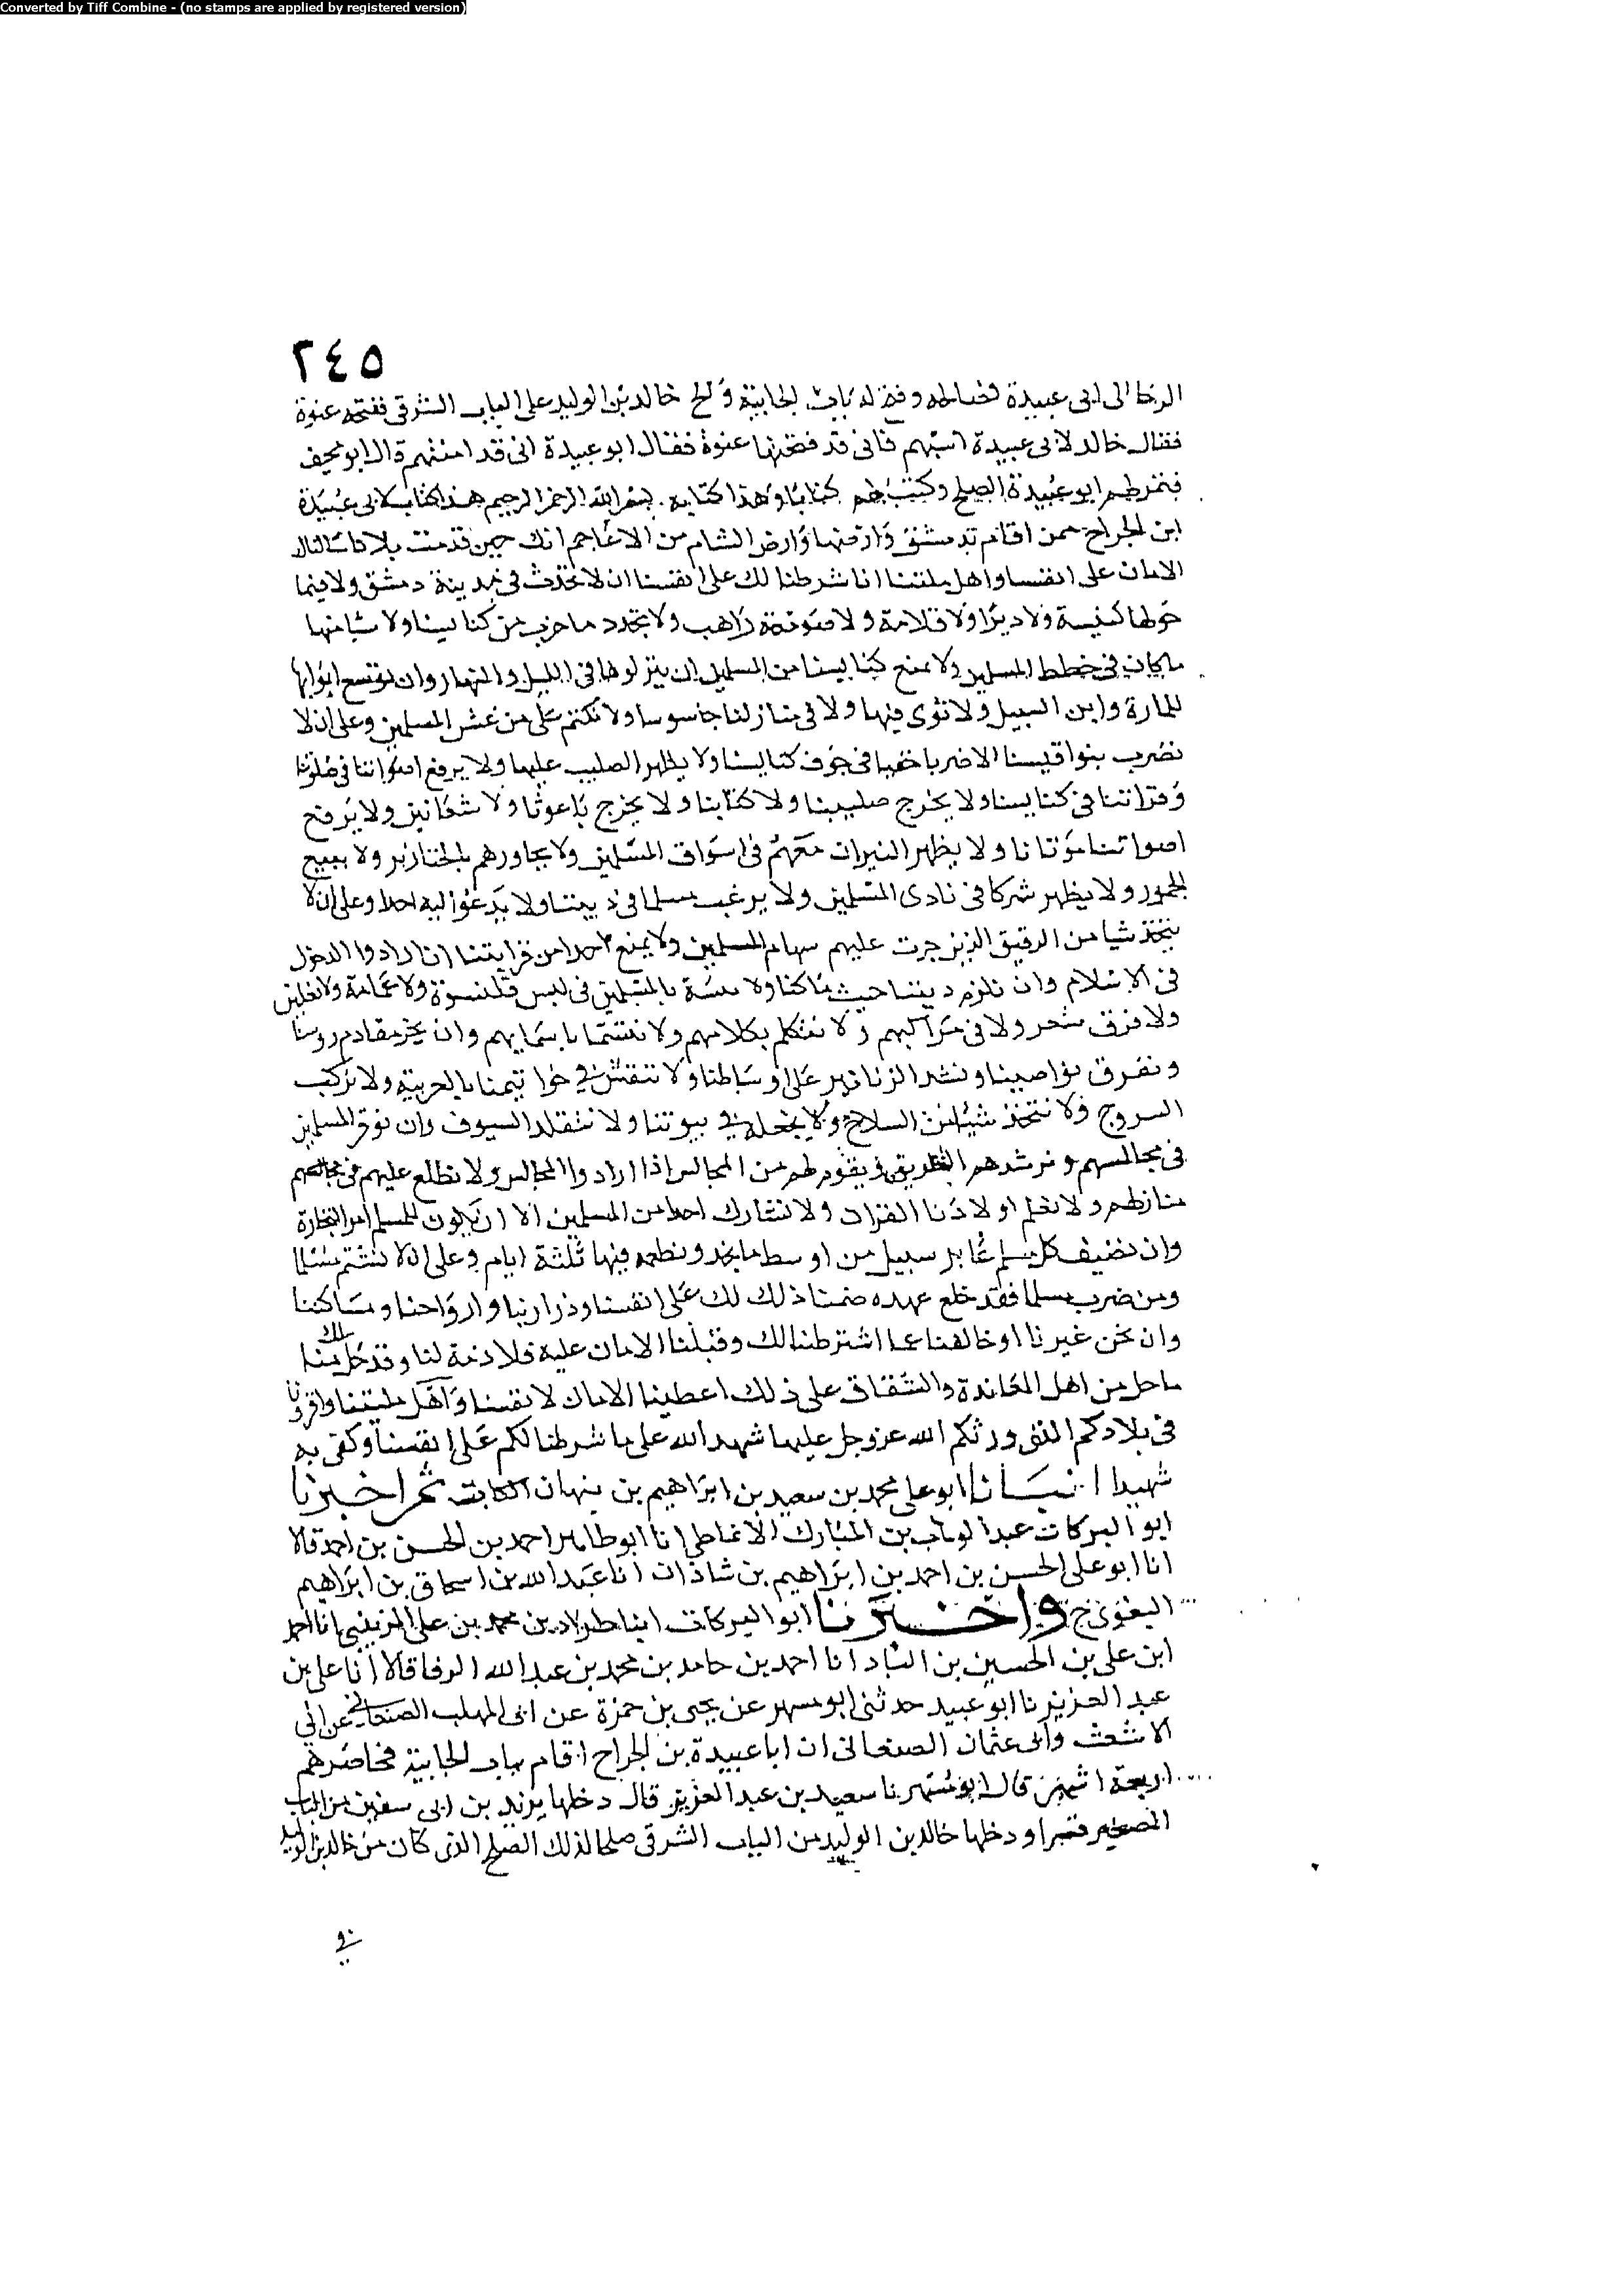 Converted by Tiff Combine - (no stamps are applied by registered version)
٢٤٥
الرضا الى ابى عبيدة فصالحه وفتح له باب الجابية وألح خالد بن الوليد على الباب الشرقى ففتحه عنوة
فقال خالد لابى عبيدة اسبهم فانى قد فتحتها عنوة فقال ابو عبيدة انى قد امنتهم قال ابو مخنف
فتم لهم ابو عبيدة الصلح وكتب لهم كتابا وهذا كتابه بسم الله الرحمن الرحيم هذا كتاب لابى عبيدة
ابن الجراح ممن اقام بدمشق وارضها وارض الشام من الاعاجم انك حين قدمت بلادنا سالناك
الامان على انفسنا واهل ملتنا انا شرطنا لك على انفسنا ان لا نحدث فى مدينة دمشق ولا فيما
حولها كنيسة ولا ديرا ولا قلاية ولا صومعة راهب ولا نجدد ما خرب من كنايسنا ولا شيا منها
ما كان فى خطط المسلمين ولا نمنع كنايسنا من المسلمين ان ينزلوها فى الليل والنهار وان نوسع ابوابها
للمارة وابن السبيل ولا نؤى فيها ولا فى منازلنا جاسوسا ولا نكتم على من غش المسلمين وعلى ان لا
نضرب بنواقيسنا الا ضربا خفيا فى جوف كنايسنا ولا نظهر الصليب عليها ولا نرفع اصواتنا فى صلوتنا
وقراتنا فى كنايسنا ولا نخرج صليبنا ولا كتابنا ولا نخرج باعوثا ولا شعانين ولا نرفع
اصواتنا بموتانا ولا نظهر النيران معهم فى اسواق المسلمين ولا نجاورهم بالخنازير ولا نبيع
الخمور ولا نظهر شركا فى نادى المسلمين ولا نرغب مسلما فى ديننا ولا ندعو اليه احدا وعلى ان لا
نتخذ شيا من الرقيق الذين جرت عليهم سهام المسلمين ولا نمنع احدا من قرابتنا ان ارادوا الدخول
فى الاسلام وان نلزم ديننا حيث ما كنا ولا نتشبه بالمسلمين فى لبس قلنسوة ولا عمامة ولا نعلين
ولا فرق شعر ولا فى مراكبهم ولا نتكلم بكلامهم ولا نتسما باسمايهم وان نجز مقادم روسنا
ونفرق نواصينا ونشد الزنانير على اوساطنا ولا ننقش فى خواتيمنا بالعربية ولا نركب
السروج ولا نتخذ شيئا من السلاح ولا نجعله فى بيوتنا ولا نتقلد السيوف وان نوقر المسلمين
فى مجالسهم ونرشدهم الطريق ونقوم لهم من المجالس اذا ارادوا المجالس ولا نطلع عليهم فى مجالسهم
منازلهم ولا نعلم اولادنا القران ولا نشارك احدا من المسلمين الا ان يكون للمسلم امر التجارة
وان نضيف كل مسلم عابر سبيل من اوسط ما نجد ونطعمه فيها ثلثة ايام وعلى ان لا نشتم مسلما
ومن ضرب مسلما فقد خلع عهده ضمنا ذلك لك على انفسنا وذرارينا وارواحنا ومساكننا
وان نحن غيرنا او خالفنا عما اشترطنا لك وقبلنا الامان عليه فلا ذمة لنا وقد حل لك منا
ما حل من اهل المعاندة والشقاق على ذلك اعطينا الامان لانفسنا واهل ملتنا واقرونا
فى بلادكم التى ورثكم الله عز وجل عليها شهد الله على ما شرطنا لكم على انفسنا وكفى به
شهيدا انبانا ابو على محمد بن سعيد بن ابراهيم بن نبهان الكاتب ثم اخبرنا
ابو البركات عبد الوهاب بن المبارك الانماطى انا ابو طاهر احمد بن الحسن بن احمد قالا
انا ابو على الحسن بن احمد بن ابراهيم بن شاذان انا عبد الله بن اسحاق بن ابراهيم
البغوى ح واخبرنا ابو البركات ابنا طراد بن محمد بن على الزينبى انا احمد
ابن على بن الحسين بن الباد انا احمد بن حامد بن محمد بن عبد الله الرفا قالا انا على بن
عبد العزيز نا ابو عبيد حدثنى ابو مسهر عن يحيى بن حمزة عن ابى المهلب الصنعانى عن ابى
الاشعث وابى عثمان الصنعانى ان ابا عبيدة بن الجراح اقام بباب الجابية فحاصرهم
اربعة اشهر قال ابو مسهر نا سعيد بن عبد العزيز قال دخلها يزيد بن ابى سفين من الباب
الصغير قسرا ودخلها خالد بن الوليد من الباب الشرقى صلحا لذلك الصلح الذى كان من خالد بن الوليد
فى